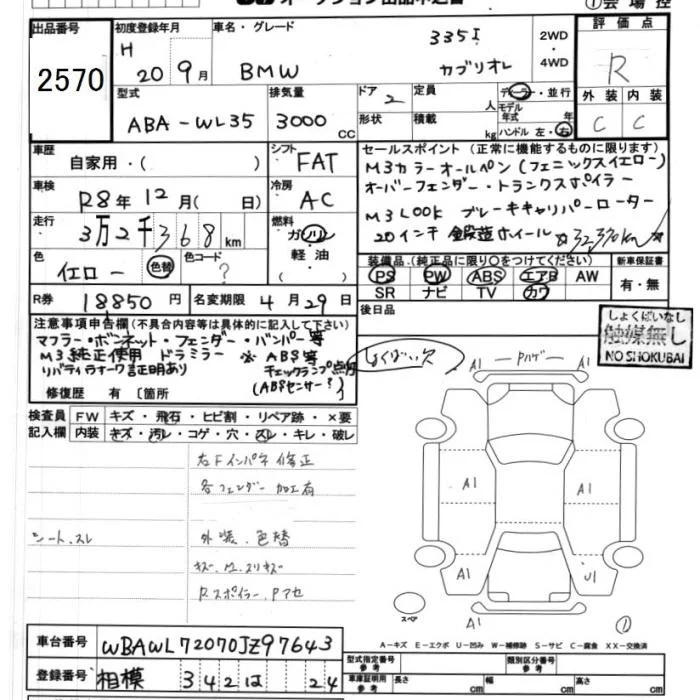 出品番号
2570
初度登録年月
H 20 9月
車名・グレード
BMW
335i
カブリオレ
2WD
・
4WD
①会場控
評価点
R
型式
ABA-WL35
排気量
3000 CC
ドア 2
定員 人
形状
積載 kg
ディーラー・並行
モデル年式 年
ハンドル 左・右
外装 内装
C C
車歴
自家用・( )
シフト
FAT
車検
R8年12月( 日)
冷房
AC
走行
3万2千368km
燃料
ガソリン
軽油
( )
色
イエロー
色替
色コード
?
セールスポイント(正常に機能するものに限ります)
M3カラーオールペン(フェニックスイエロー)
オーバーフェンダー・トランクスポイラー
M3LOOK ブレーキキャリパーローター
20インチ鍛造ホイール ☆32,370km☆
装備品(純正品に限り〇をつけてください)
PS PW ABS エアB AW
SR ナビ TV カワ
新車保証書
有・無
R券
18850円
名変期限 4月29日
後日品
注意事項申告欄(不具合内容等は具体的に記入して下さい)
マフラー・ボンネット・フェンダー・バンパー等
M3純正使用 ドラミラー ※ABS等
リバティウオーク証明あり チェックランプ点灯
(ABSセンサー?)
修復歴 有 〔箇所 〕
しょくばい欠
しょくばいなし
触媒無し
NO SHOKUBAI
検査員
記入欄
FW キズ・飛石・ヒビ割・リペア跡・×要
内装 キズ・汚レ・コゲ・穴・スレ・キレ・破レ
右Fインパネ修正
各フェンダー加工有
シート、スレ
外装、色替
キズ、ワレ、スリキズ
Rスポイラー、Pアセ
A1 Pハゲ A1
A1 A1
A1 U1
A1 ①
スペア
A-キズ E-エクボ U-凹み W-補修跡 S-サビ C-腐食 XX-交換済
車台番号
WBAWL72070JZ97643
登録番号
相模 342 は 24
型式指定番号
参考
類別区分番号
参考
車庫証明用
参考
長さ cm
幅 cm
高さ cm